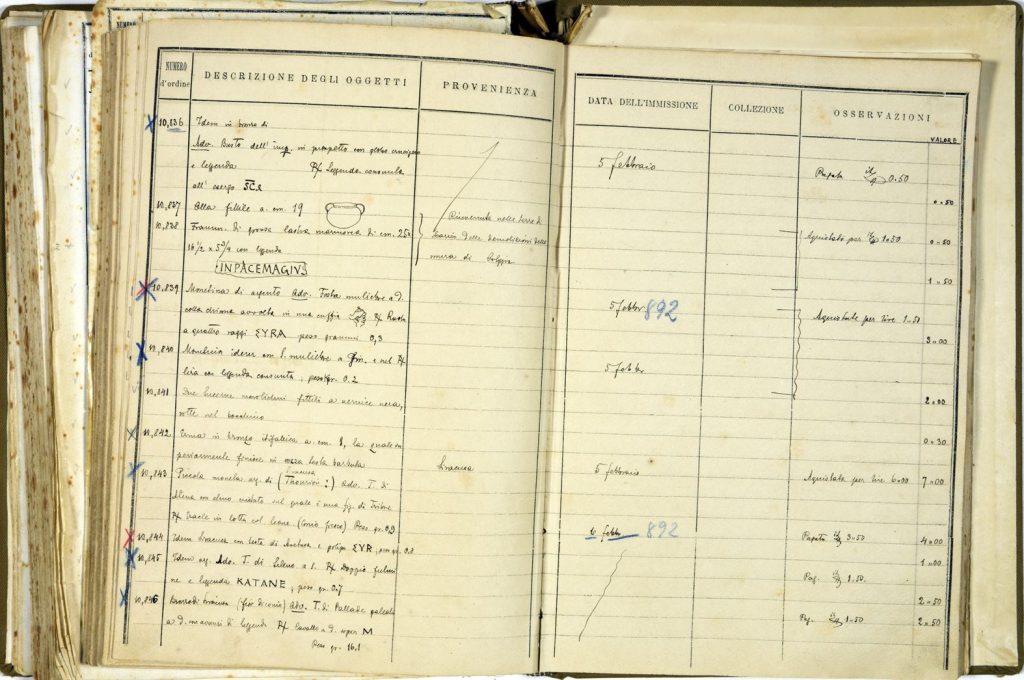 NUMERO
NUMERO d'ordine
DESCRIZIONE DEGLI OGGETTI
PROVENIENZA
DATA DELL'IMMISSIONE
COLLEZIONE
OSSERVAZIONI
VALORE
10,836 Idem in bronzo di
Adv. Busto dell' imp. in prospetto con globo crucigero
e leggenda R/ Leggenda consunta
all' esergo SCL
5 febbraio
Pagata 0.50
0=50
10,837 Olla fittile a. cm. 19
10,838 Framm. di grossa lastra marmorea di cm. 25
16 1/2 x 5 3/4 con leggenda
INPACEMAGIVS
Rinvenute nelle terre di
scarico delle demolizioni delle
mura di
Aquistato per 1=50
0=50
1=50
10,839 Monetina di argento Adv. Testa muliebre a d.
colla chioma avvolta in una cuffia R/ Ruota
a quattro raggi ΣYRA peso grammi 0,3
5 febbr. 892
Aquistate per lire 1=50
3=00
10,840 Monetina idem con t. muliebre a e nel R/
lira con leggenda consunta, peso gr. 0.2
5 febbr.
2=00
10,841 Due lucerne monolicni fittili a vernice nera,
rotte nel beccuccio
0=30
10,842 Erma in bronzo itifallica a. cm. 1, la quale su
periormente finisce in testa barbata
Siracusa
5 febbraio
Aquistata per lire 6=00
7=00
10,843 Piccola moneta arg. di (Thourion:) Adv. T. di
Siracusa
Atena con elmo nel quale è una fig. di Tritone
R/ Eracle in lotta col leone Peso gr. 0,9
6 febb. 892
Pagata 3=50
4=00
10,844 Idem Siracusa con testa di Aretusa e polipo ΣYR, peso gr. 0.8
1=00
10,845 Idem arg. Adv. T. di Sileno a s. R/ Doppio fulmi
ne e leggenda KATANE, peso gr. 0.7
Pag. 1.50
2=50
10,846 Bronzo di Siracusa (fior di conio) Adv. T. di Pallade galeata
a d. di leggenda R/ Cavallo a d. sopra M
Peso gr. 16.1
Pag. 1=50
2=50